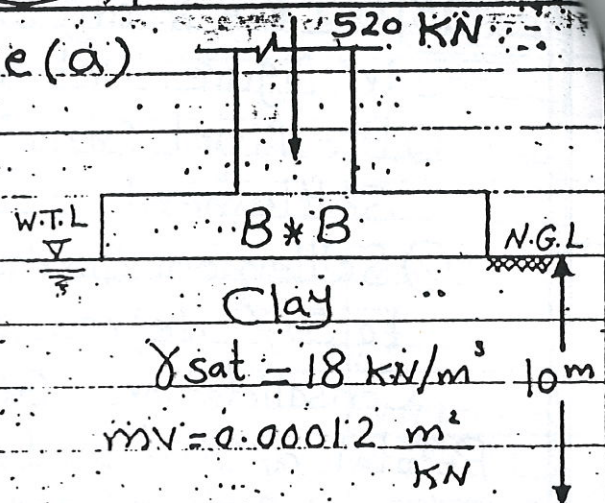 520 KN
e (a)
W.T.L
B*B
N.G.L
Clay
γsat = 18 KN/m³
10m
mv = 0.00012 m²/KN